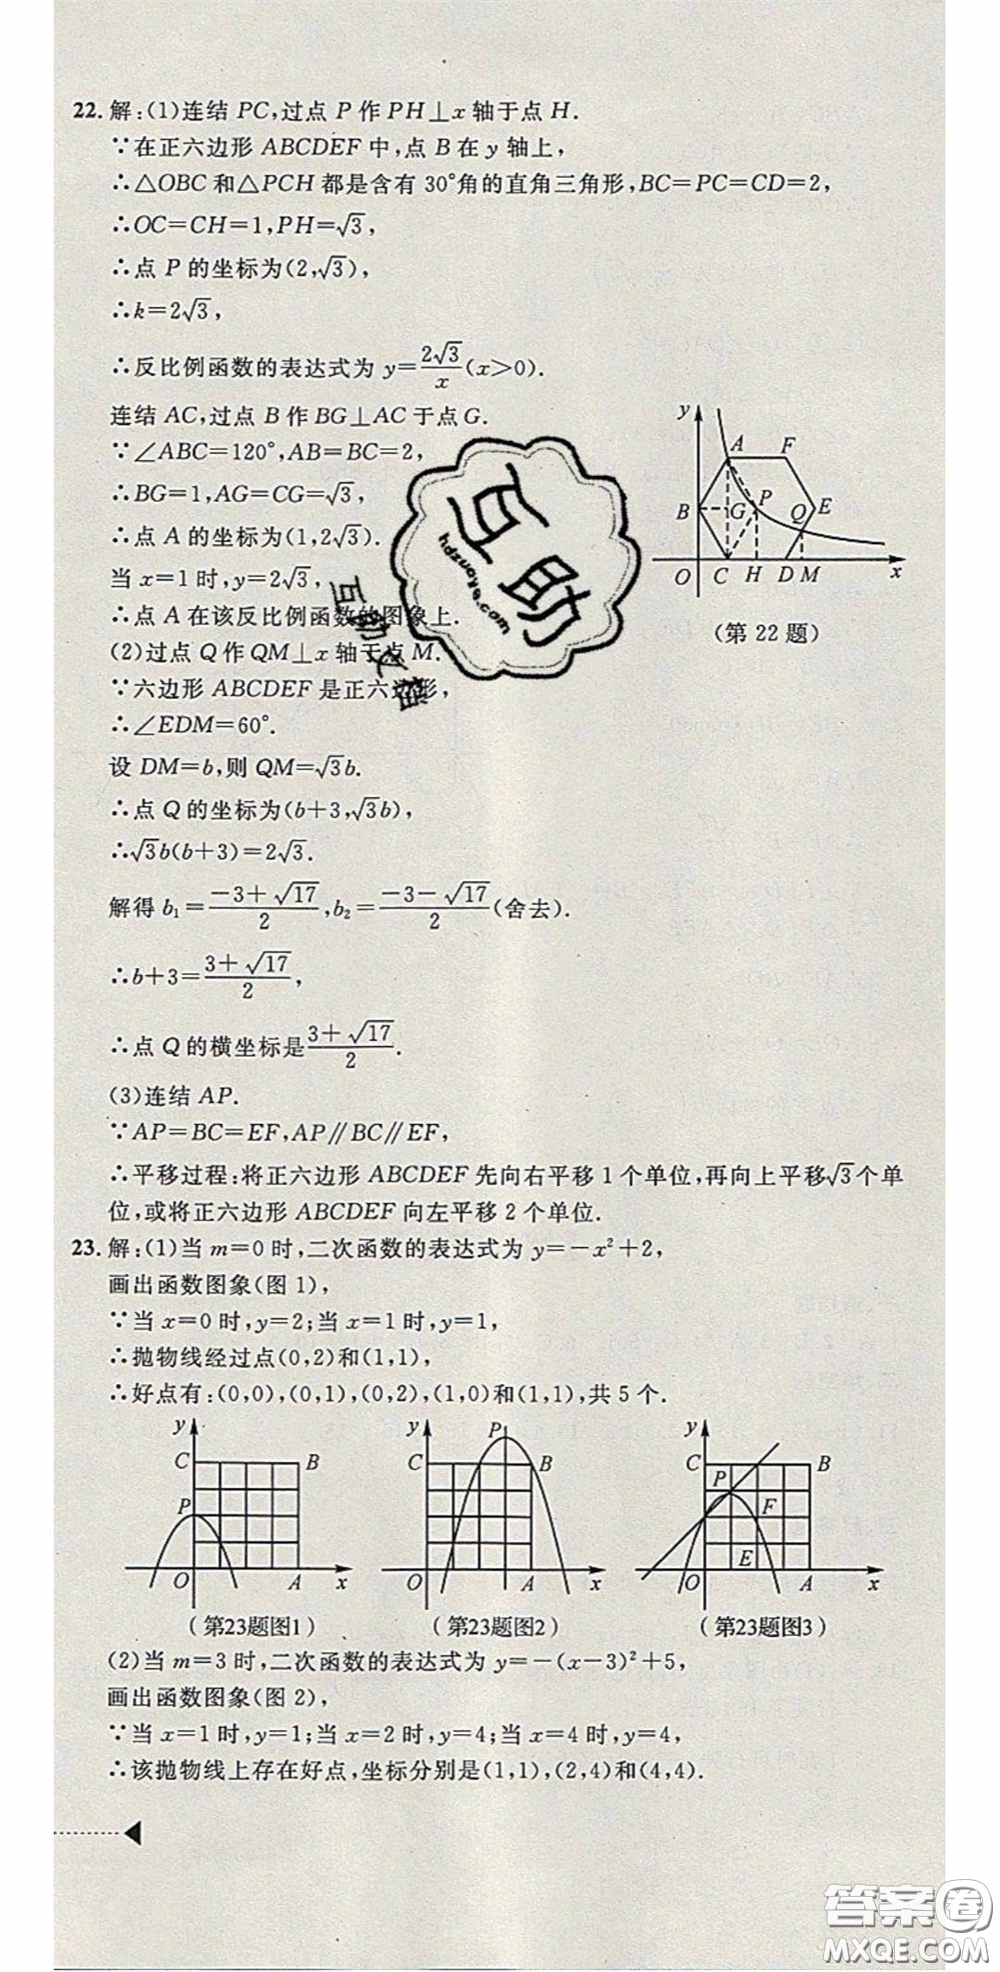 22.解:(1)连结 PC,过点 P 作 PH⊥x 轴于点 H.
∵在正六边形 ABCDEF 中,点 B 在 y 轴上,
∴△OBC 和△PCH 都是含有 30°角的直角三角形,BC=PC=CD=2,
∴OC=CH=1,PH=√3,
∴点 P 的坐标为(2,√3),
∴k=2√3,
∴反比例函数的表达式为 y=2√3/x(x>0).
连结 AC,过点 B 作 BG⊥AC 于点 G.
∵∠ABC=120°,AB=BC=2,
∴BG=1,AG=CG=√3,
∴点 A 的坐标为(1,2√3).
当 x=1 时,y=2√3,
∴点 A 在该反比例函数的图象上.
(2)过点 Q 作 QM⊥x 轴于点 M.
∵六边形 ABCDEF 是正六边形,
∴∠EDM=60°.
设 DM=b,则 QM=√3b.
∴点 Q 的坐标为(b+3,√3b),
∴√3b(b+3)=2√3.
解得 b₁=(-3+√17)/2,b₂=(-3-√17)/2(舍去).
∴b+3=(3+√17)/2,
∴点 Q 的横坐标是(3+√17)/2.
(3)连结 AP.
∵AP=BC=EF,AP∥BC∥EF,
∴平移过程:将正六边形 ABCDEF 先向右平移 1 个单位,再向上平移√3个单
位,或将正六边形 ABCDEF 向左平移 2 个单位.
y
A F
B G P Q E
O C H D M x
(第 22 题)
互助
hdzuoye.com
互助文档
23.解:(1)当 m=0 时,二次函数的表达式为 y=-x²+2,
画出函数图象(图 1),
∵当 x=0 时,y=2;当 x=1 时,y=1,
∴抛物线经过点(0,2)和(1,1),
∴好点有:(0,0),(0,1),(0,2),(1,0)和(1,1),共 5 个.
y C B P O A x
(第23题图1)
y P C B O A x
(第23题图2)
y C B P F E O A x
(第23题图3)
(2)当 m=3 时,二次函数的表达式为 y=-(x-3)²+5,
画出函数图象(图 2),
∵当 x=1 时,y=1;当 x=2 时,y=4;当 x=4 时,y=4,
∴该抛物线上存在好点,坐标分别是(1,1),(2,4)和(4,4).
答案卷
MXQE.COM